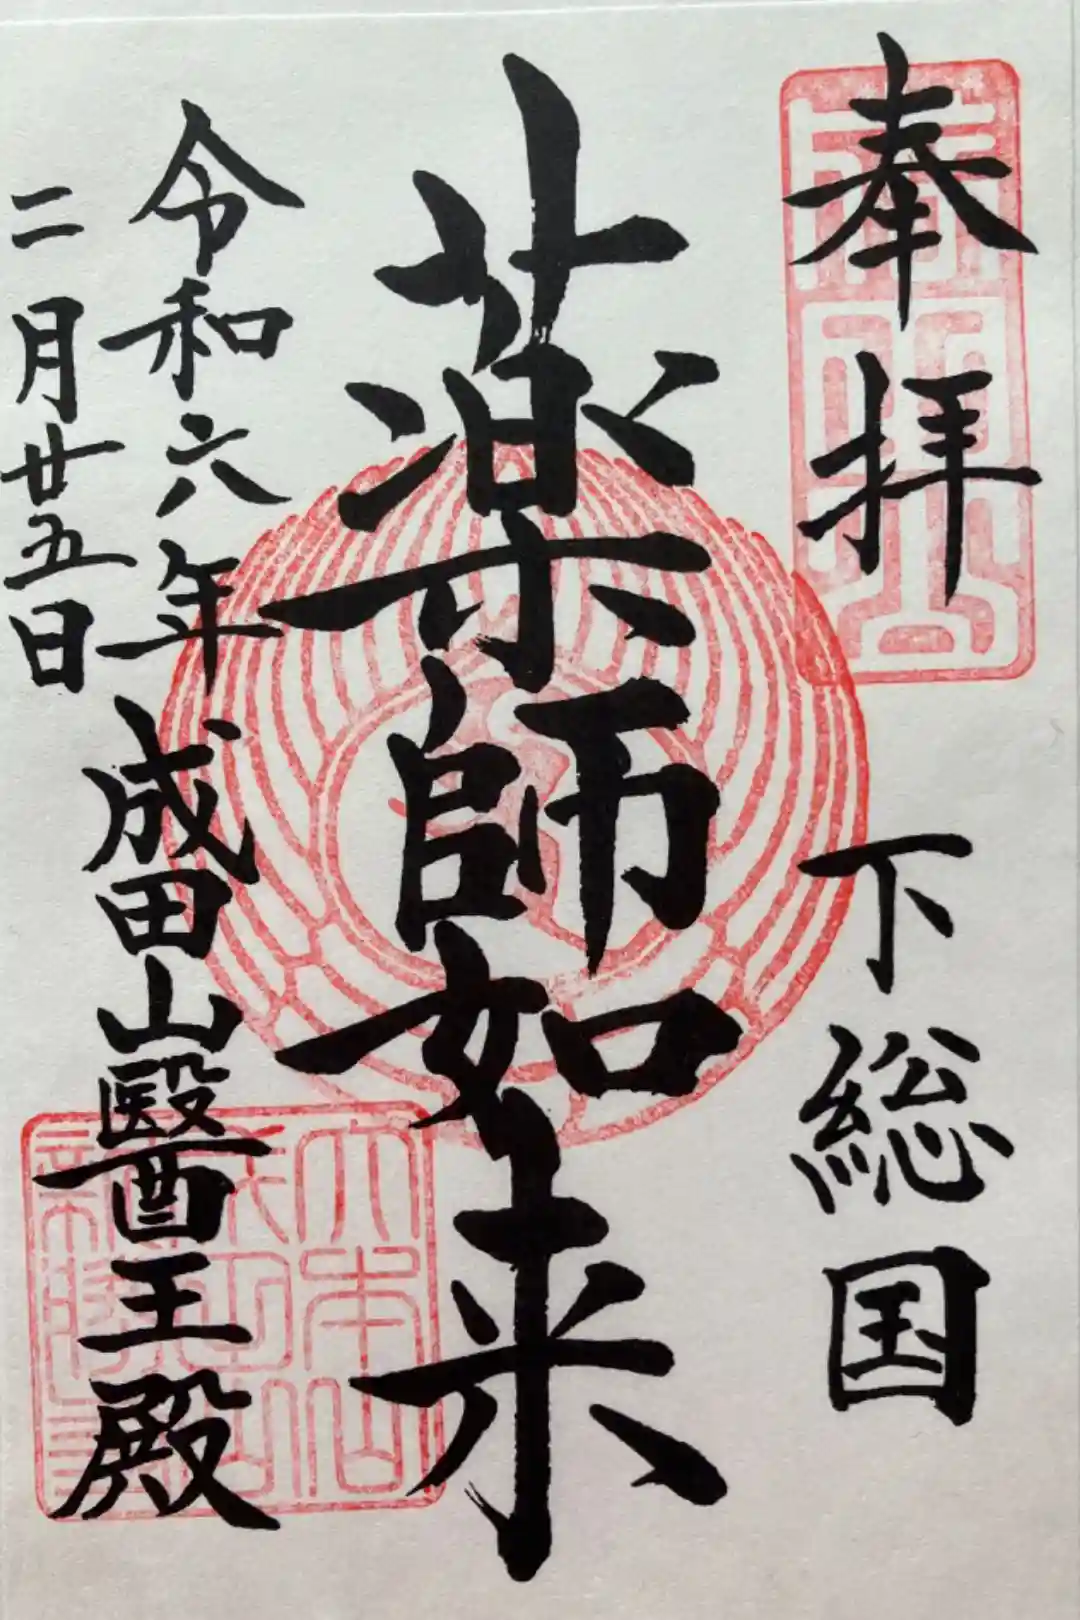 奉拝
下総国
薬師如来
令和六年
二月廿五日
成田山醫王殿